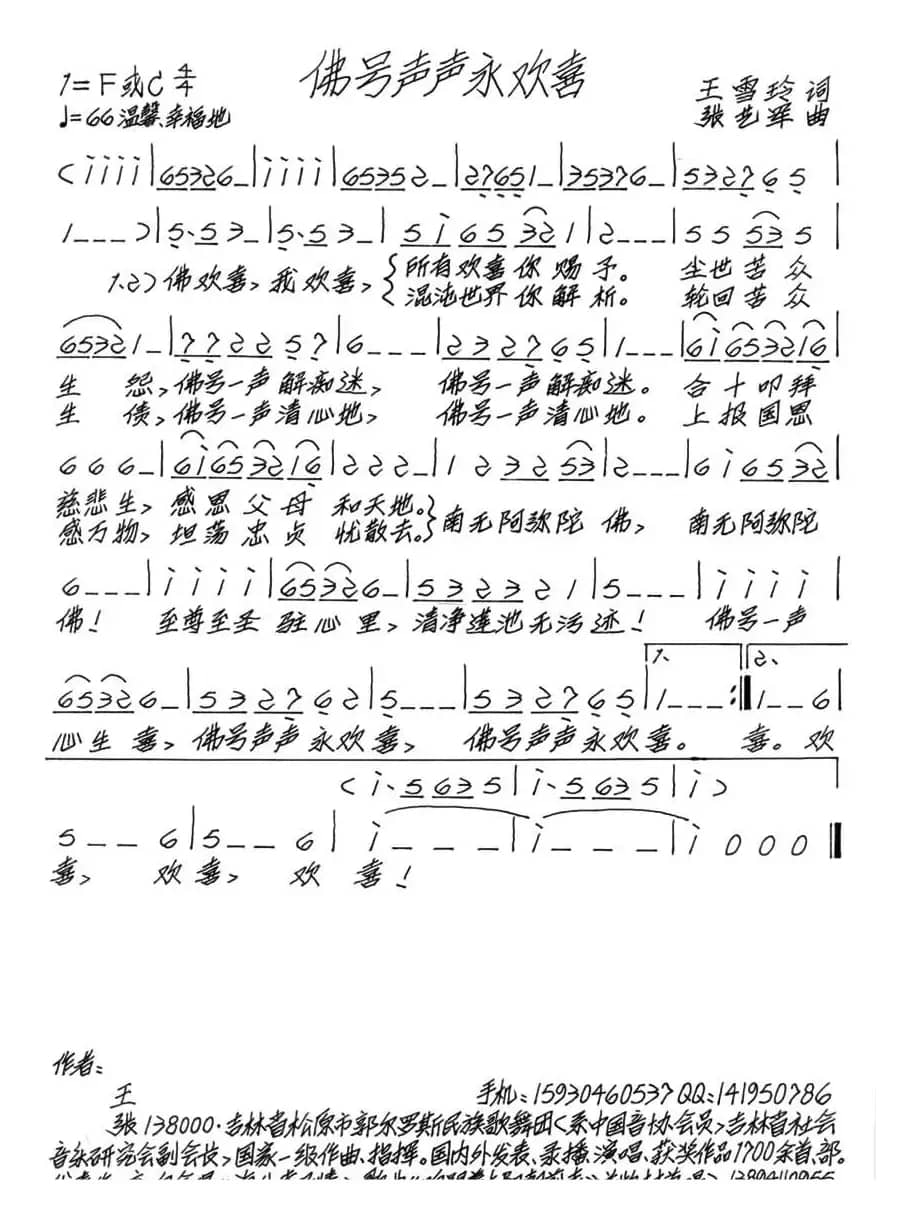 佛号声声永欢喜
1=F或C 4/4
♩=66 温馨、幸福地
王雪玲 词
张艺军 曲
<i i i i|65326_|i i i i|65352_|27651_|35376_|532765|
1___>|5·53_|5·53_|5i65321|2___|55535|
1.2)佛欢喜,我欢喜,{所有欢喜你赐予。 尘世苦众
混沌世界你解析。 轮回苦众
65321_|772257|6___|232765|1___|6i653216|
生 怨,佛号一声解痴迷, 佛号一声解痴迷。 合十叩拜
生 债,佛号一声清心地, 佛号一声清心地。 上报国恩
666_|6i653216|222_|123253|2___|6i6532|
慈悲生,感恩父母 和天地。}南无阿弥陀佛, 南无阿弥陀
感万物,坦荡忠贞 忧散去。
6___|i i i i|65326_|532321|5___|i i i i|
佛! 至尊至圣 驻心里,清净莲池无污迹! 佛号一声
1、 2、
65326_|532762|5___|532765|1___:‖1__6|
心生喜,佛号声声永欢喜, 佛号声声永欢喜。 喜。欢
<i·5635|i·5635|i>
5__6|5__6|i___|i___|i000‖
喜, 欢喜, 欢喜!
作者:
王 手机:15930460537QQ:141950786
张138000·吉林省松原市郭尔罗斯民族歌舞团<系中国音协会员>吉林省社会
音乐研究会副会长>国家一级作曲、指挥。国内外发表、录播、演唱、获奖作品1700余首、部。